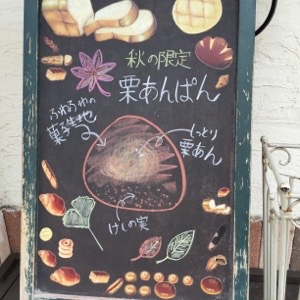 秋の限定
栗あんぱん
ふわふわの
菓子生地
しっとり
栗あん
けしの実